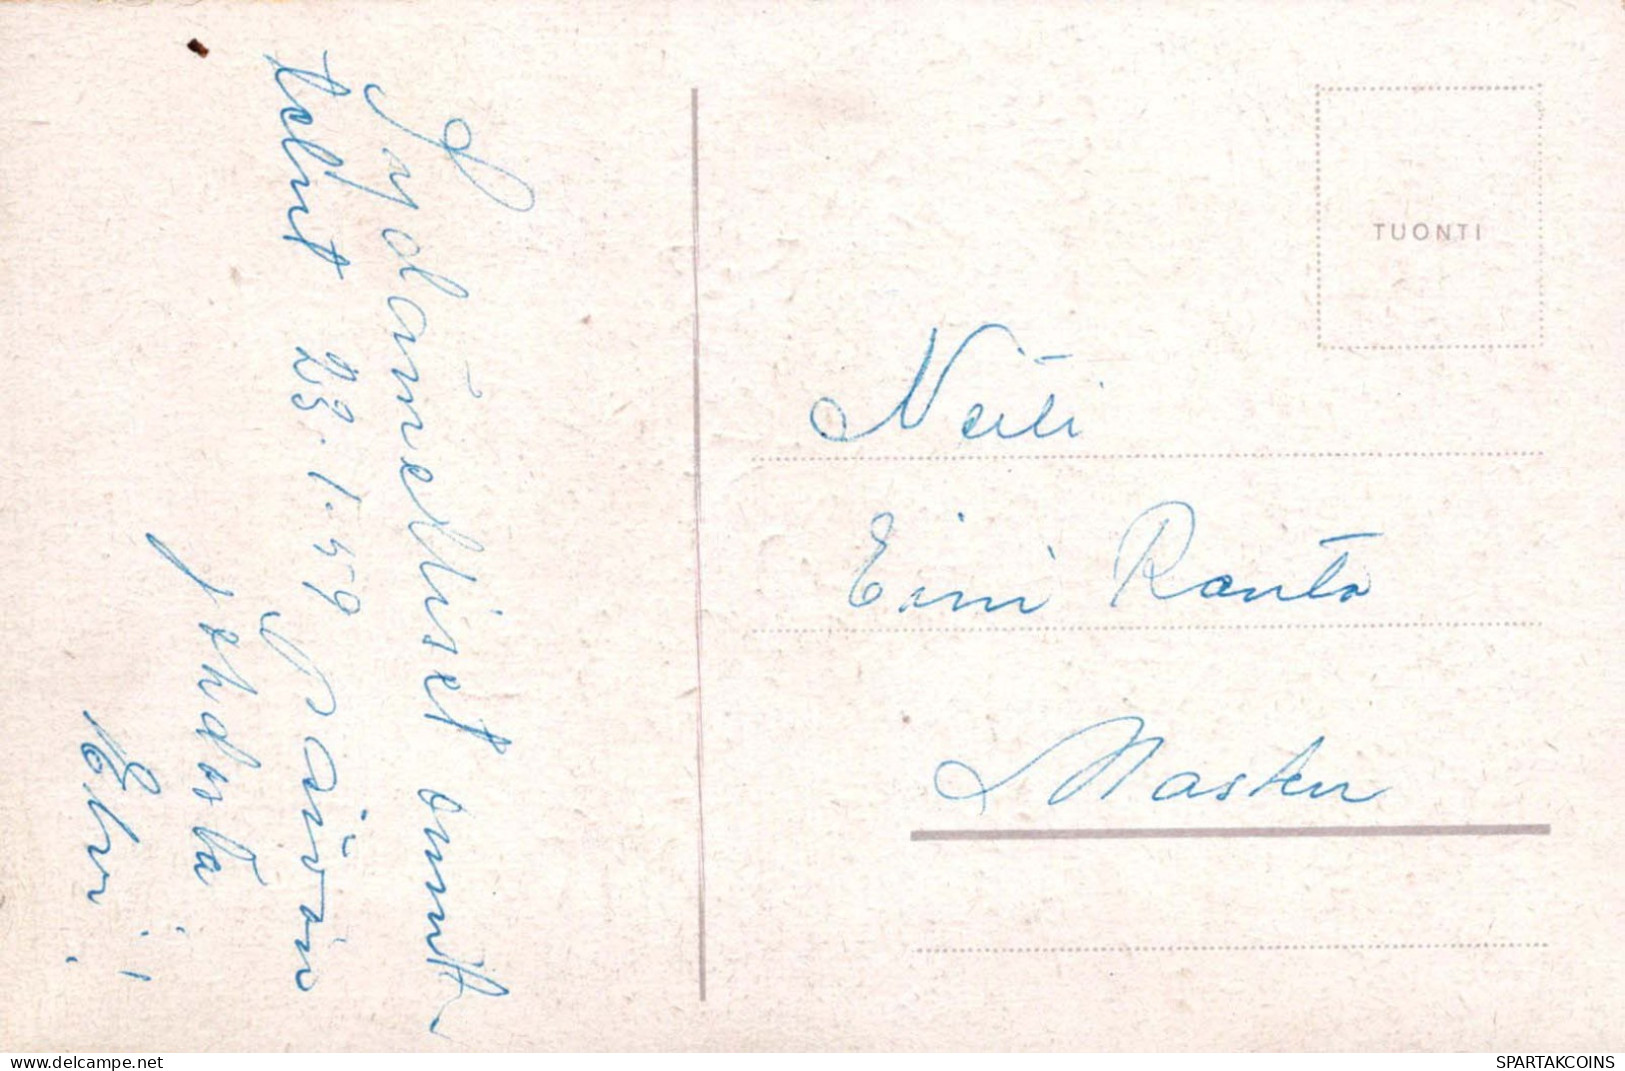 Sydämelliset onnit-
telut 23.1.-59
päivän
johdosta
Elvi.
TUONTI
Neiti
Eini Ranta
Masku
delcampe.net
SPARTAKCOINS